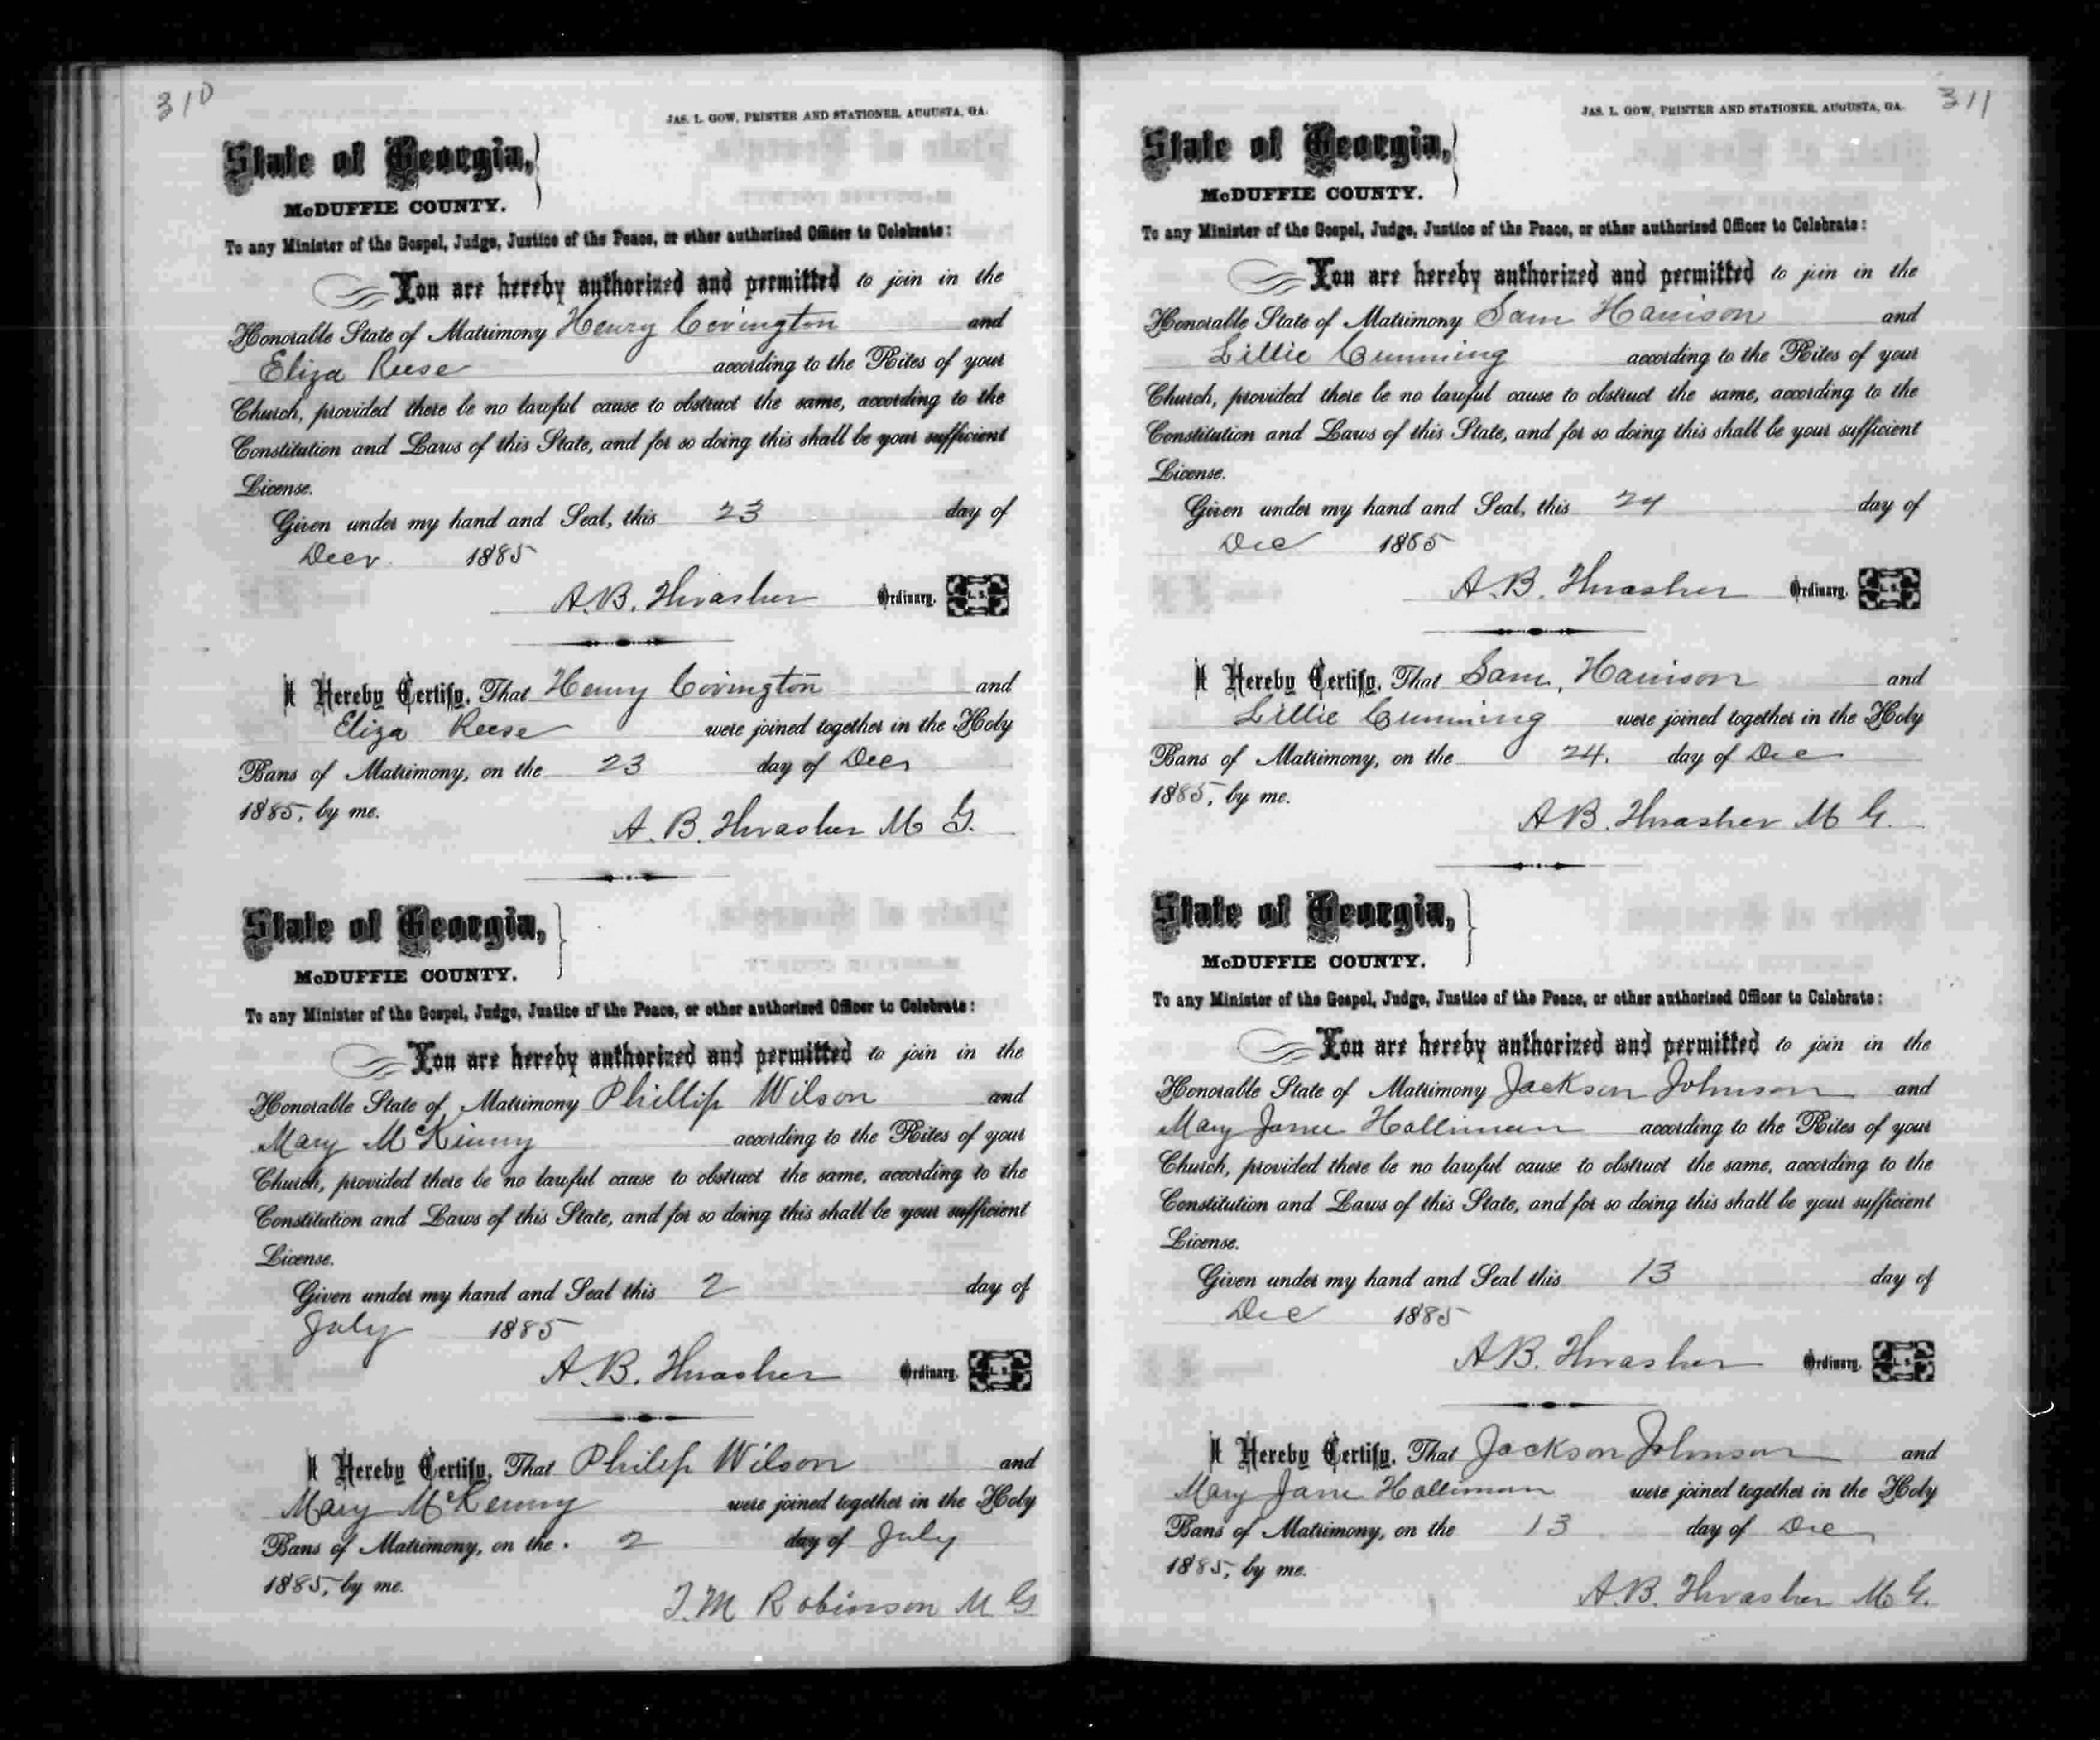 310
JAS. L. GOW, PRINTER AND STATIONER, AUGUSTA, GA.
State of Georgia,
McDUFFIE COUNTY.
To any Minister of the Gospel, Judge, Justice of the Peace, or other authorized Officer to Celebrate:
You are hereby authorized and permitted to join in the
Honorable State of Matrimony Henry Covington and
Eliza Reese according to the Rites of your
Church, provided there be no lawful cause to obstruct the same, according to the
Constitution and Laws of this State, and for so doing this shall be your sufficient
License.
Given under my hand and Seal, this 23 day of
Decr. 1885
A. B. Thrasher Ordinary. L. S.
I Hereby Certify, That Henry Covington and
Eliza Reese were joined together in the Holy
Bans of Matrimony, on the 23 day of Decr
1885, by me.
A. B. Thrasher M G.
State of Georgia,
McDUFFIE COUNTY.
To any Minister of the Gospel, Judge, Justice of the Peace, or other authorized Officer to Celebrate:
You are hereby authorized and permitted to join in the
Honorable State of Matrimony Phillip Wilson and
Mary McKinny according to the Rites of your
Church, provided there be no lawful cause to obstruct the same, according to the
Constitution and Laws of this State, and for so doing this shall be your sufficient
License.
Given under my hand and Seal this 2 day of
July 1885
A. B. Thrasher Ordinary. L. S.
I Hereby Certify, That Philip Wilson and
Mary McKenny were joined together in the Holy
Bans of Matrimony, on the 2 day of July
1885, by me.
J. M Robinson M G
JAS. L. GOW, PRINTER AND STATIONER, AUGUSTA, GA.
311
State of Georgia,
McDUFFIE COUNTY.
To any Minister of the Gospel, Judge, Justice of the Peace, or other authorized Officer to Celebrate:
You are hereby authorized and permitted to join in the
Honorable State of Matrimony Sam Harrison and
Lillie Cumming according to the Rites of your
Church, provided there be no lawful cause to obstruct the same, according to the
Constitution and Laws of this State, and for so doing this shall be your sufficient
License.
Given under my hand and Seal, this 24 day of
Dec 1885
A. B. Thrasher Ordinary. L. S.
I Hereby Certify, That Sam, Harrison and
Lillie Cumming were joined together in the Holy
Bans of Matrimony, on the 24. day of Dec
1885, by me.
A B. Thrasher M G.
State of Georgia,
McDUFFIE COUNTY.
To any Minister of the Gospel, Judge, Justice of the Peace, or other authorized Officer to Celebrate:
You are hereby authorized and permitted to join in the
Honorable State of Matrimony Jackson Johnson and
Mary Jane Holliman according to the Rites of your
Church, provided there be no lawful cause to obstruct the same, according to the
Constitution and Laws of this State, and for so doing this shall be your sufficient
License.
Given under my hand and Seal this 13 day of
Dec 1885
A B. Thrasher Ordinary. L. S.
I Hereby Certify, That Jackson Johnson and
Mary Jane Holliman were joined together in the Holy
Bans of Matrimony, on the 13 day of Dec
1885, by me.
A. B. Thrasher M G.